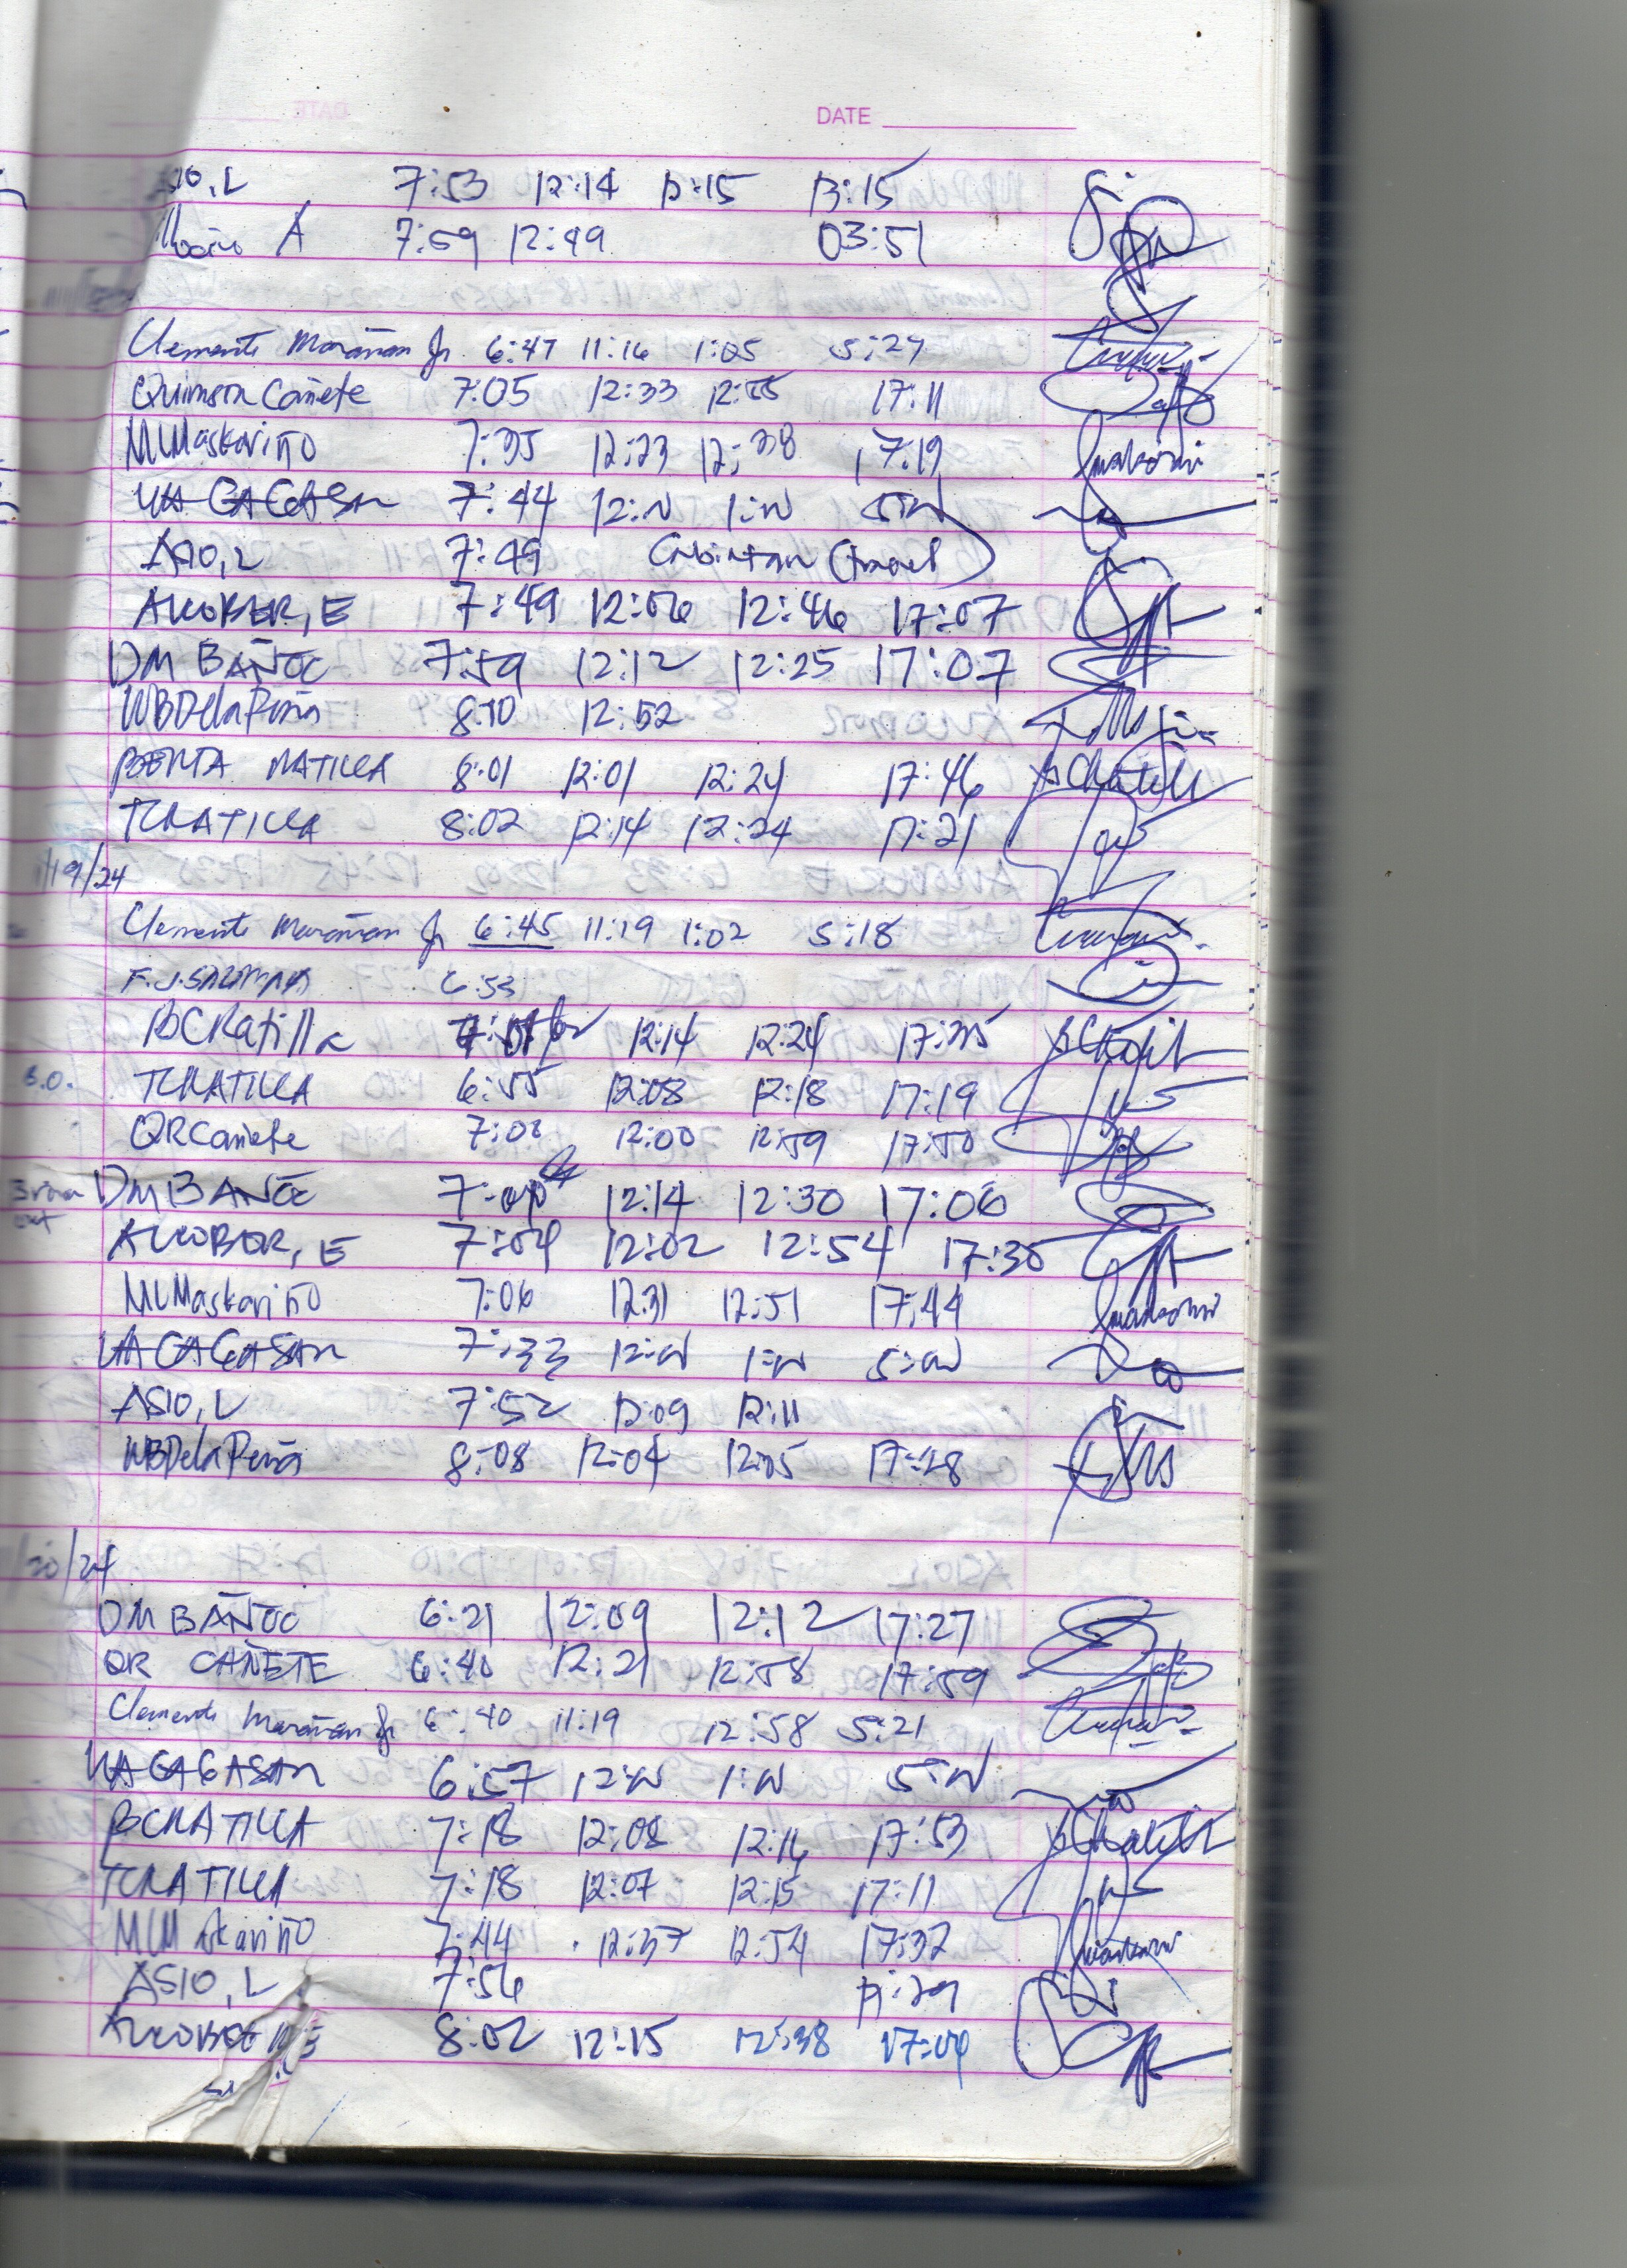 DATE
, L 7:53 12:14 12:15 13:15
A 7:59 12:49 03:51
Clemente Marañan Jr. 6:47 11:16 1:05 5:27
Quimson Cañete 7:05 12:33 12:55 17:11
MLMaskariño 7:35 12:23 12:38 17:19
VA GAGASAn 7:44 12:N 1:N 5:N
ASIO, L 7:49 (travel)
ALCOBER, E 7:49 12:06 12:46 17:07
DM BAÑOC 7:59 12:12 12:25 17:07
WBDelaPeña 8:10 12:52
BENTA RATILLA 8:01 12:01 12:24 17:46
TCRATILLA 8:02 12:14 12:24 17:21
19/24
Clemente Marañan Jr 6:45 11:19 1:02 5:18
F.J.SALIMPAN 6:53
BCRatilla 12:14 12:24 17:35
TCRATILLA 6:55 12:08 12:18 17:19
QRCañete 7:02 12:00 12:59 17:50
DM BAÑOC 12:14 12:30 17:06
ALCOBER, E 7:04 12:02 12:54 17:30
MLMaskariño 7:06 12:31 12:51 17:44
VA GAGASAn 7:33 12:N 1:N 5:N
ASIO, L 7:52 12:09 12:11
WBDelaPeña 8:08 12:04 12:05 17:28
20/24
DM BAÑOC 6:21 12:09 12:12 17:27
QR CAÑETE 6:40 12:21 12:58 17:59
Clemente Marañan Jr 6:40 11:19 12:58 5:21
VA GAGASAn 6:57 12:N 1:N 5:N
BCRATILLA 7:18 12:08 12:16 17:53
TCRATILLA 7:18 12:07 12:15 17:11
MLMaskariño 7:44 12:37 12:54 17:32
ASIO, L 7:56 17:29
ALCOBER E 8:02 12:15 12:38 17:04